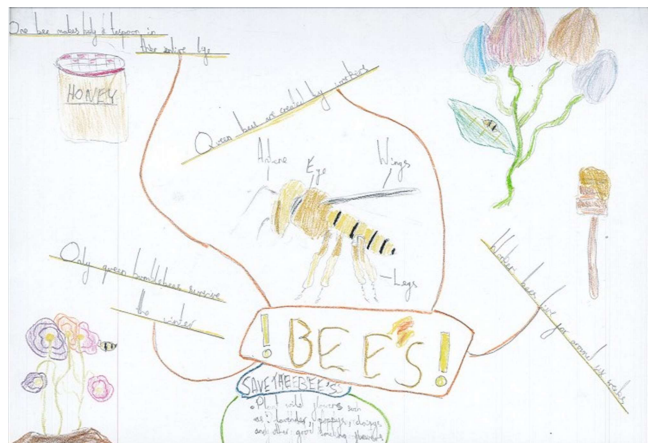 One bee makes half a teaspoon in
their entire life
HONEY
Queen bees are created by workers
Antene
Eye
Wings
Legs
Only queen bumblebees survive
the winter
Worker bees live for around six weeks
! BEE'S !
SAVE THE BEE'S
• Plant wild flowers such
as: lavender, poppys, daisys
and other good looking flowers